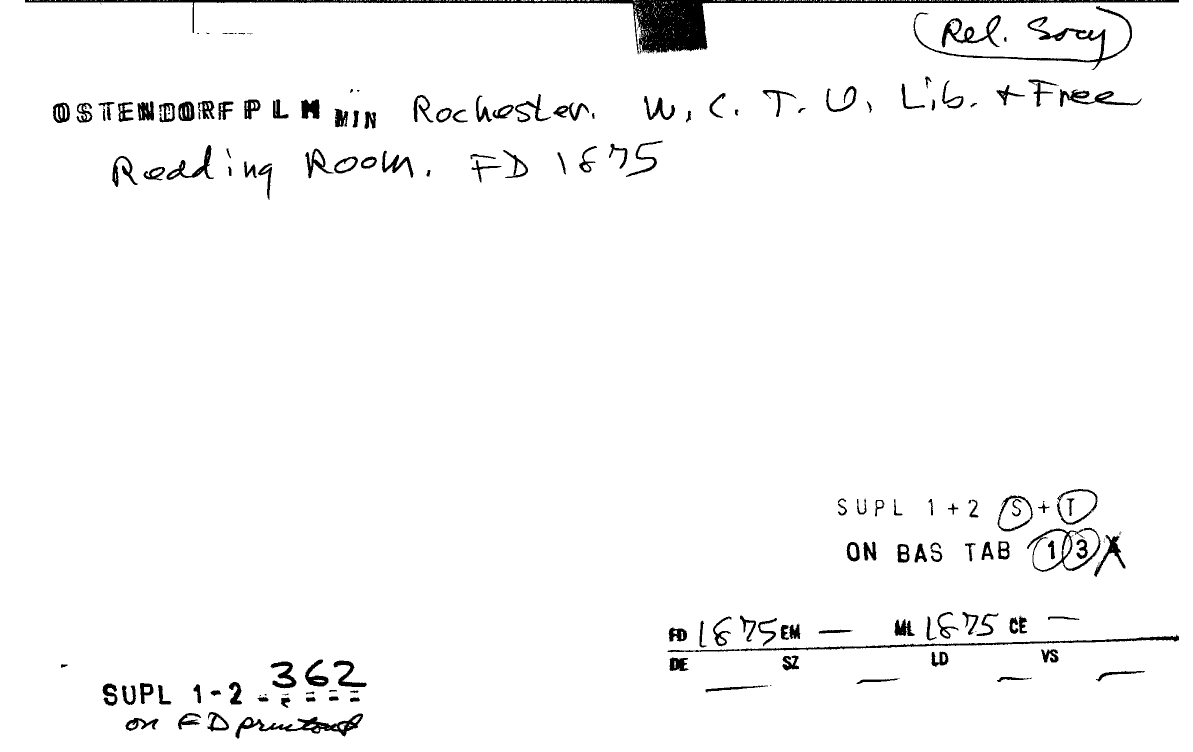 (Rel. Socy)
OSTENDORF P L M MIN Rochester. W. C. T. U. Lib. + Free
Reading Room. FD 1875
SUPL 1+2 S + T
ON BAS TAB 1 3 4
FD 1875 EM — ML 1875 CE —
DE — SZ — LD — VS —
SUPL 1-2 362
on FD printout